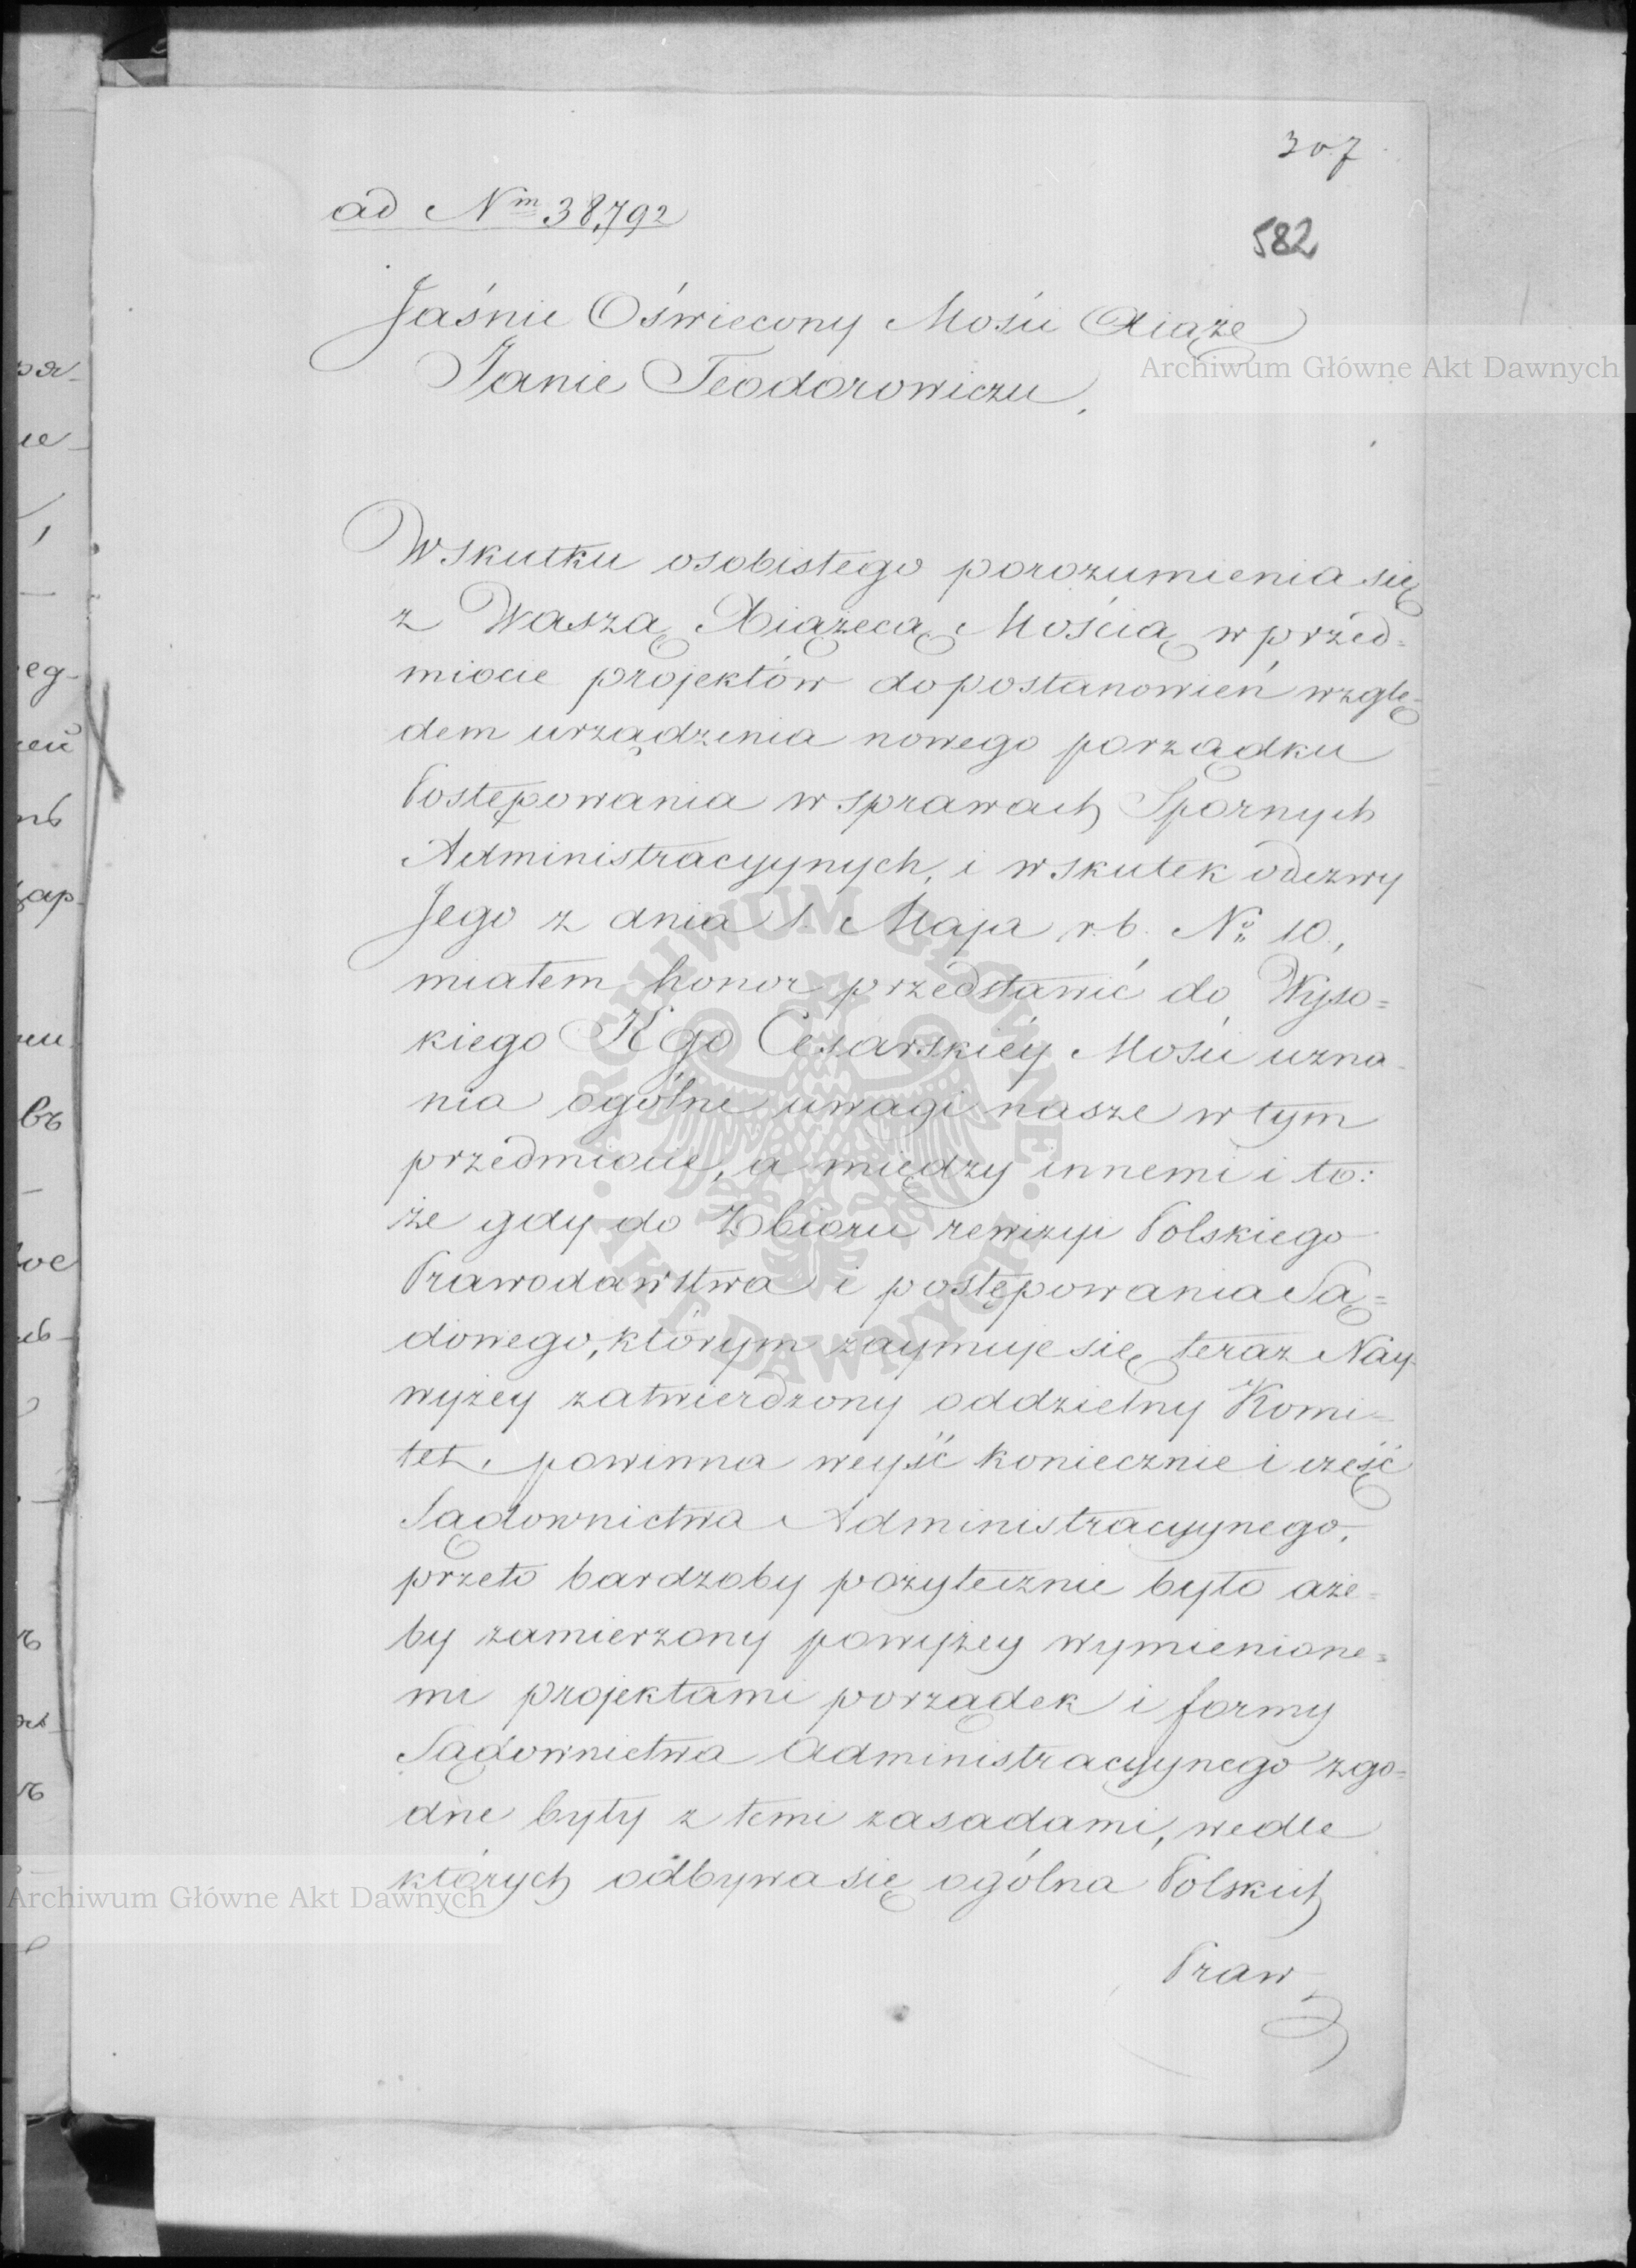 307
ad Nm 38,792
582
Jaśnie Oświecony Mości Xiąże
Janie Teodorowiczu,
W skutku osobistego porozumienia się
z Waszą Xiążęcą Mością w przed=
miocie projektów do postanowień wzglę=
dem urządzenia nowego porządku
Postępowania w sprawach Spornych
Administracyynych, i w skutek odezwy
Jego z dnia 1. Maja r.b. No 10.,
miałem honor przedstawić do Wyso=
kiego Jego Cesarskiéy Mości uzna=
nia ogólne uwagi nasze w tym
przedmiocie, a między innemi i to:
że gdy do Zbioru rewizyi Polskiego
Prawodawstwa i postępowania Są=
dowego, którym zaymuje się teraz Nay=
wyżey zatwierdzony oddzielny Komi=
tet, powinna weyść koniecznie i część
Sądownictwa Administracyynego,
przeto bardzoby pożytecznie było aże=
by zamierzony powyżey wymienione=
mi projektami porządek i formy
Sądownictwa Administracyynego zgo=
dne były z temi zasadami, wedle
których odbywa się ogólna Polskich
Praw
Archiwum Główne Akt Dawnych
ARCHIWUM GŁÓWNE
AKT DAWNYCH
Archiwum Główne Akt Dawnych